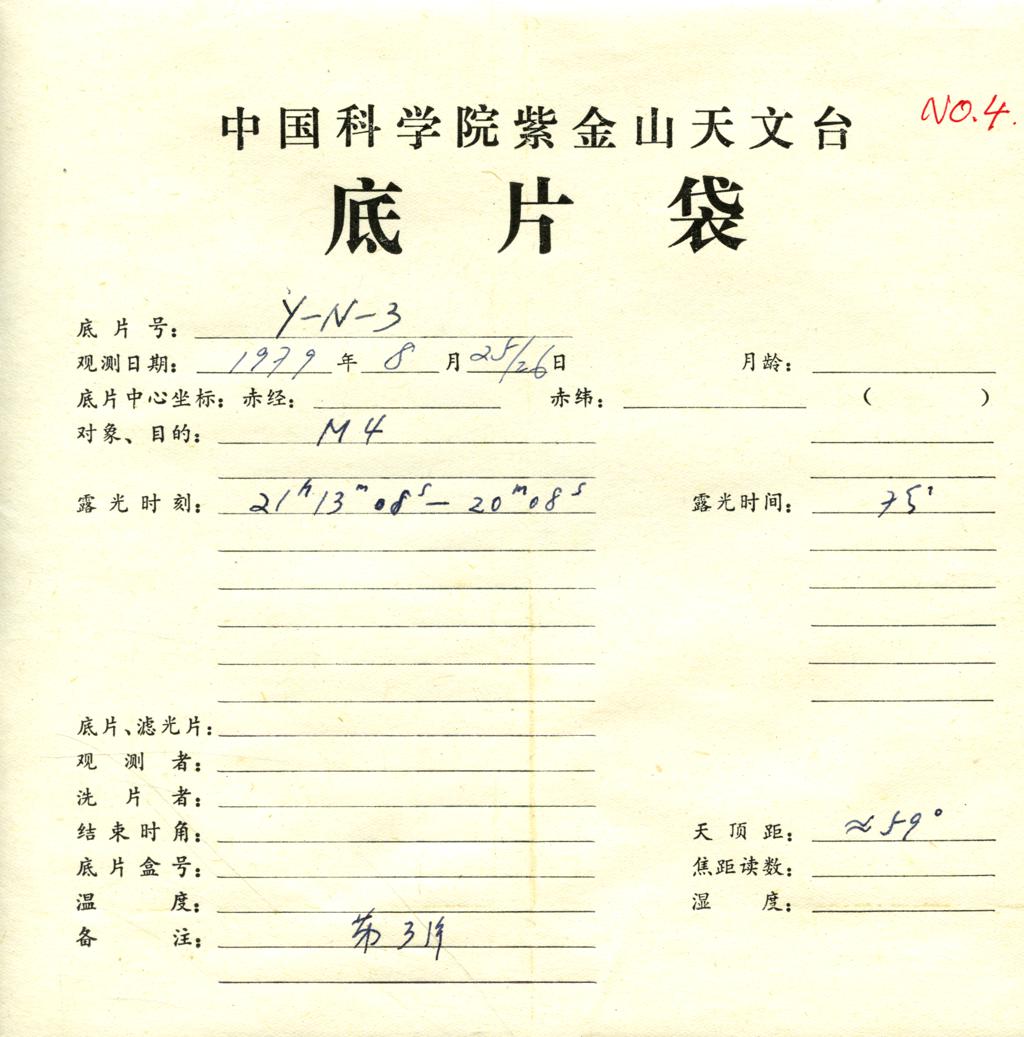 NO.4.
中国科学院紫金山天文台
底片袋
底片号: Y-N-3
观测日期: 1979年8月25/26日 月龄:
底片中心坐标: 赤经: 赤纬: ( )
对象、目的: M4
露光时刻: 21h13m08s—20m08s 露光时间: 75'
底片、滤光片:
观测者:
洗片者:
结束时角: 天顶距: ≈59°
底片盒号: 焦距读数:
温度: 湿度:
备注: 第3片